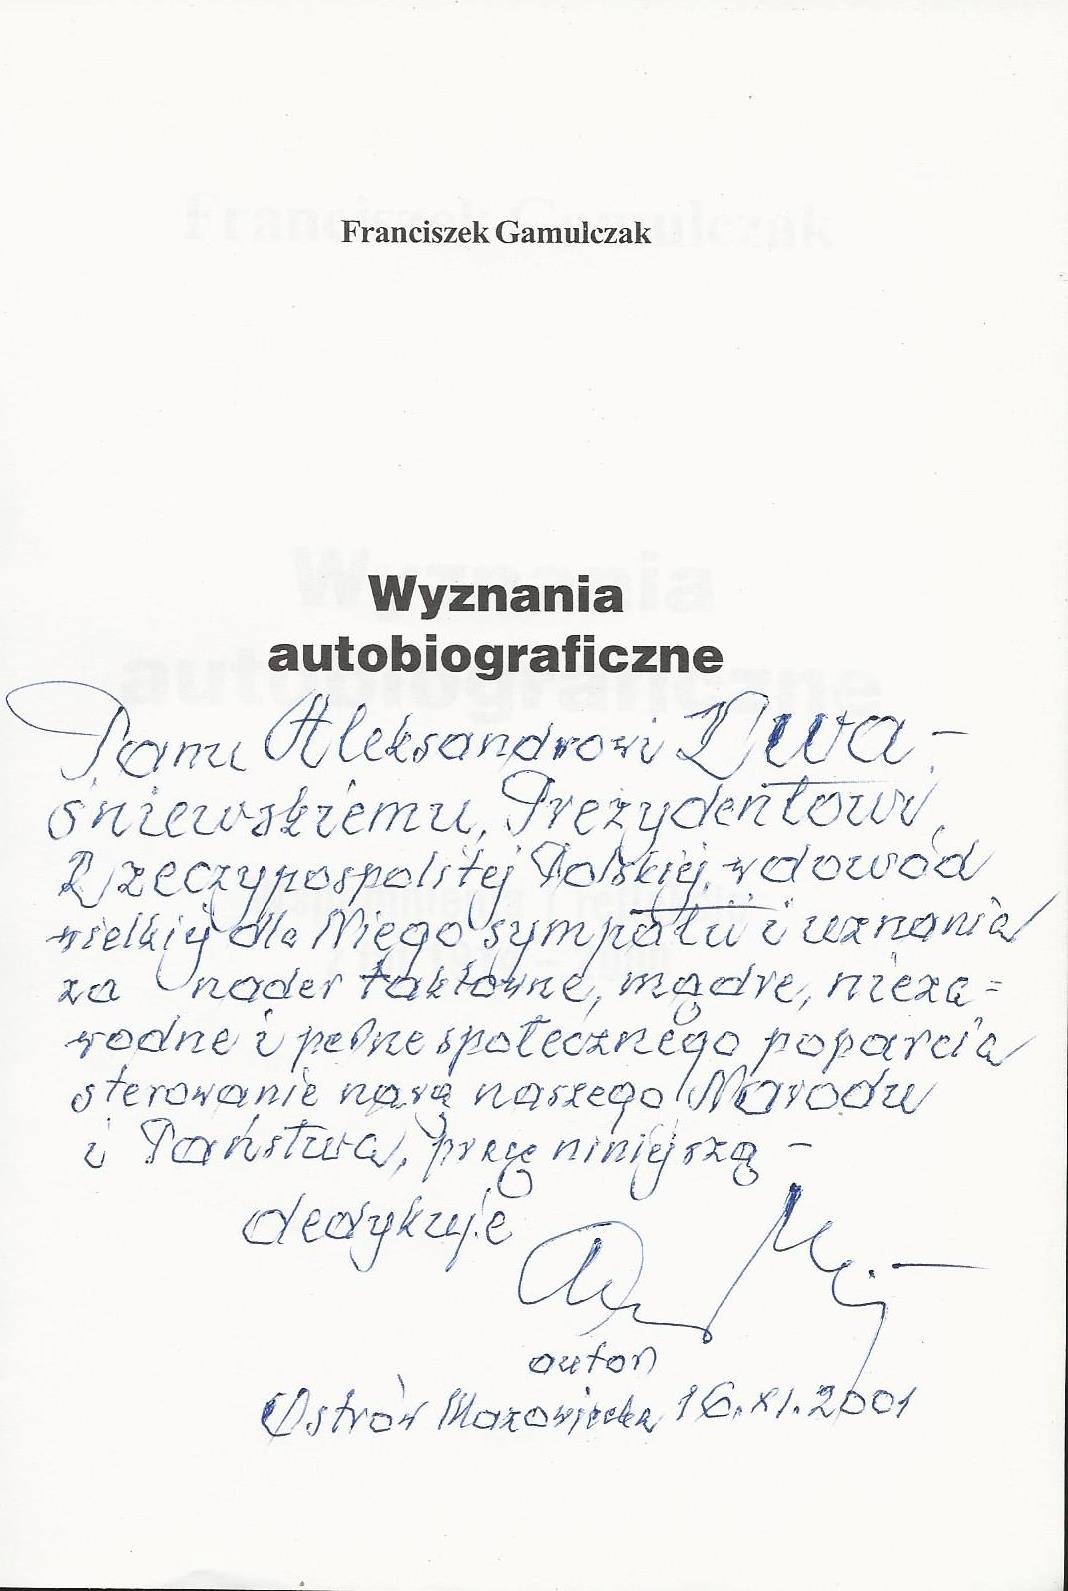 Franciszek Gamulczak
Wyznania
autobiograficzne
Panu Aleksandrowi Kwa-
śniewskiemu, Prezydentowi
Rzeczypospolitej Polskiej, w dowód
wielkiej dla Niego sympatii i uznania
za nader taktowne, mądre, nieza=
wodne i pełne społecznego poparcia
sterowanie nawą naszego Narodu
i Państwa, pracę niniejszą -
dedykuje
autor
Ostrów Mazowiecka 16.XI.2001